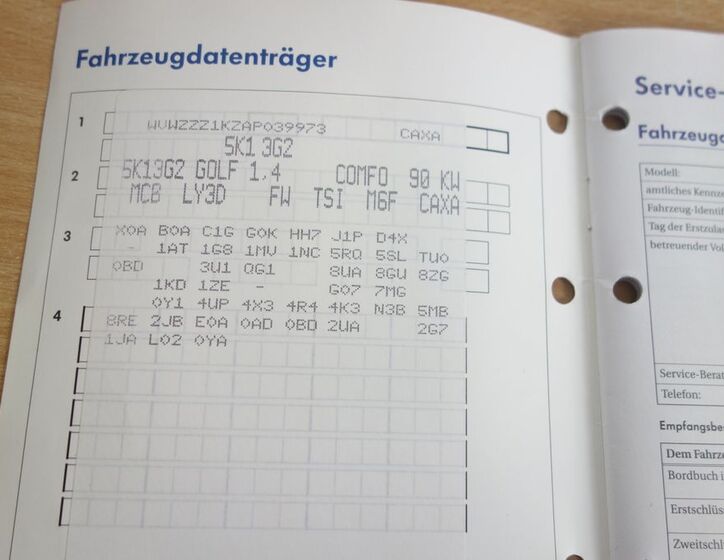 Fahrzeugdatenträger
1
WVWZZZ1KZAP039973 CAXA
5K1 3G2
2
5K13G2 GOLF 1,4 COMFO 90 KW
MCB LY3D FW TSI M6F CAXA
3
X0A B0A C1G G0K HH7 J1P D4X
- 1AT 1G8 1MV 1NC 5RQ 5SL TU0
0BD 3U1 QG1 8UA 8GU 8ZG
1KD 1ZE - G07 7MG
0Y1 4UP 4X3 4R4 4K3 N3B 5MB
4
8RE 2JB E0A 0AD 0BD 2UA 2G7
1JA L02 0YA
Service-
Modell:
amtliches Kennze
Fahrzeug-Ident
Tag der Erstzula
betreuender Vol
Service-Berat
Telefon:
Empfangsbe
Dem Fahrze
Bordbuch i
Erstschlüss
Zweitschl